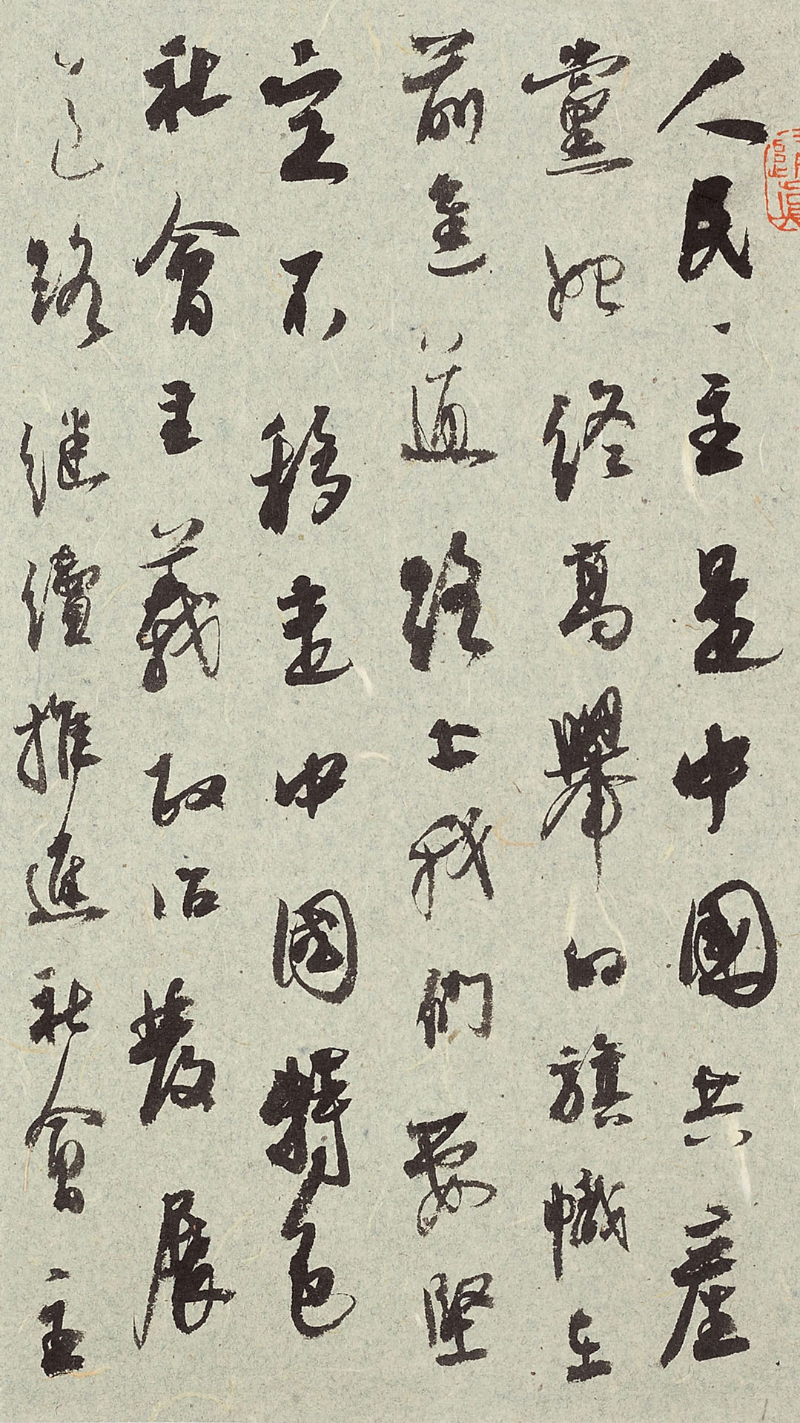 人民主是中國共產
黨始終高舉的旗幟在
前進道路上我們要堅
定不移走中國特色
社會主義政治發展
道路繼續推進社會主